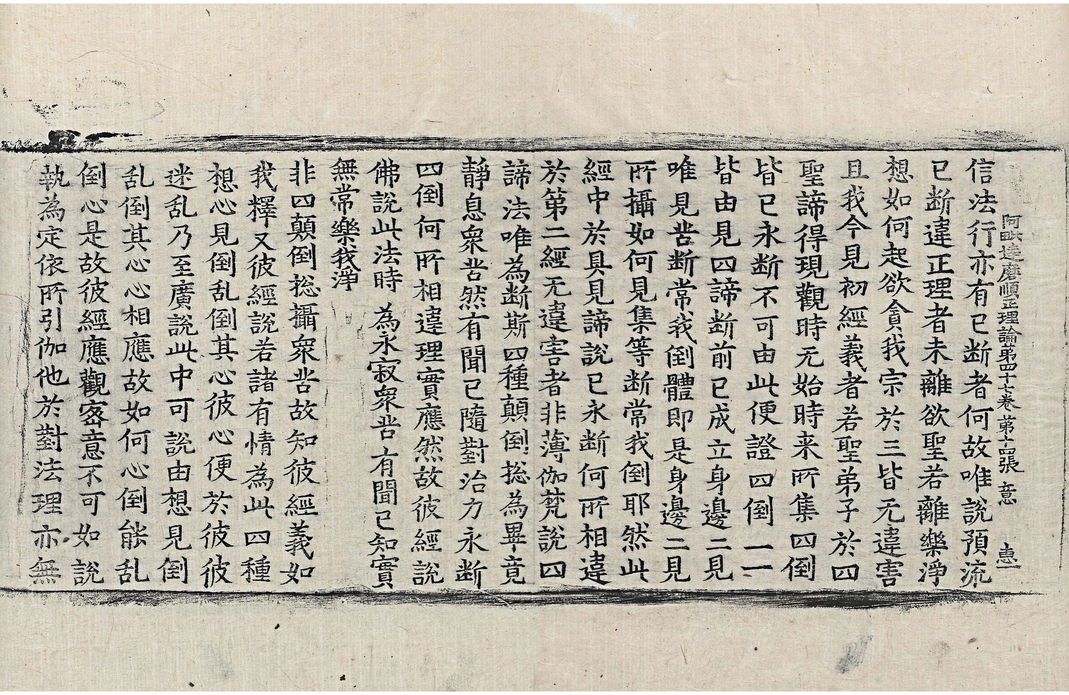 阿毗達磨順正理論苐四十七卷 苐十四張 意 惠一
信法行亦有已断者何故唯說預流
已断違正理者未離欲聖若離樂淨
想如何起欲貪我宗於三皆无違害
且我今見初經義者若聖弟子於四
聖諦得現觀時无始時来所集四倒
皆已永断不可由此便證四倒一一
皆由見四諦断前已成立身邊二見
唯見苦断常我倒體即是身邊二見
所攝如何見集等断常我倒耶然此
經中於具見諦說已永断何所相違
於苐二經无違害者非薄伽梵說四
諦法唯為断斯四種顛倒揔為畢竟
靜息衆苦然有聞已隨對治力永断
四倒何所相違理實應然故彼經說
佛說此法時 為永寂衆苦 有聞已知實
無常樂我淨
非四顛倒揔攝衆苦故知彼經義如
我釋又彼經說若諸有情為此四種
想心見倒乱倒其心彼心便於彼彼
迷乱乃至廣說此中可說由想見倒
乱倒其心心相應故如何心倒能乱
倒心是故彼經應觀密意不可如說
執為定依所引伽他於對法理亦無